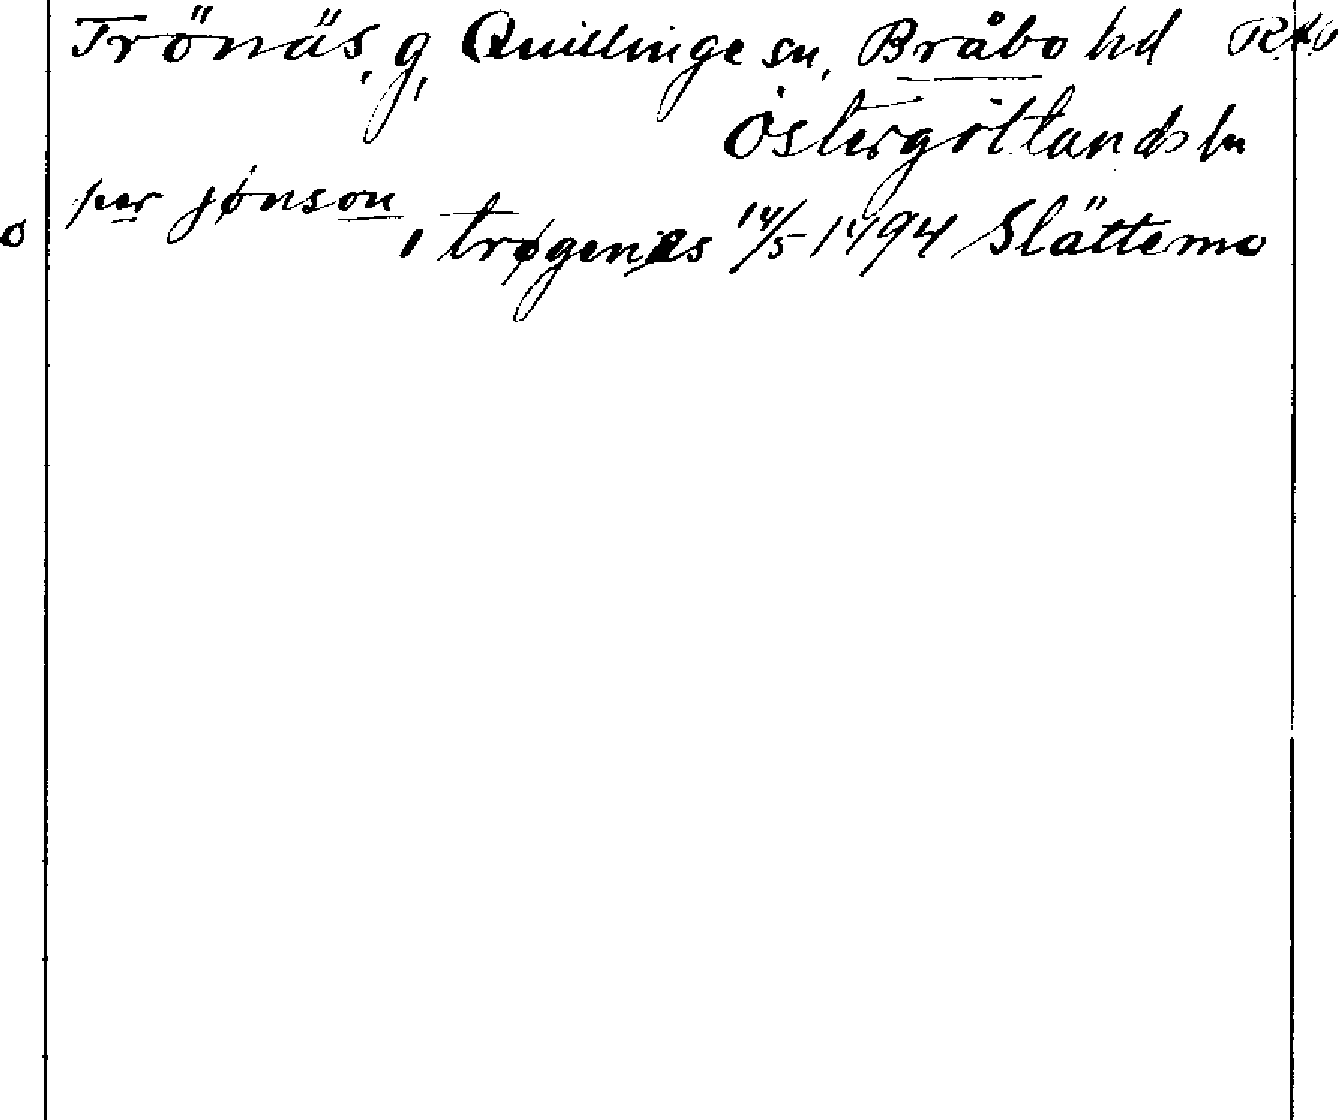 Trönäs, g, Quillinge sn, Bråbo hd
Östergötlands ln
per jønson
o i trøgenes 14/5 1494 Slättemo